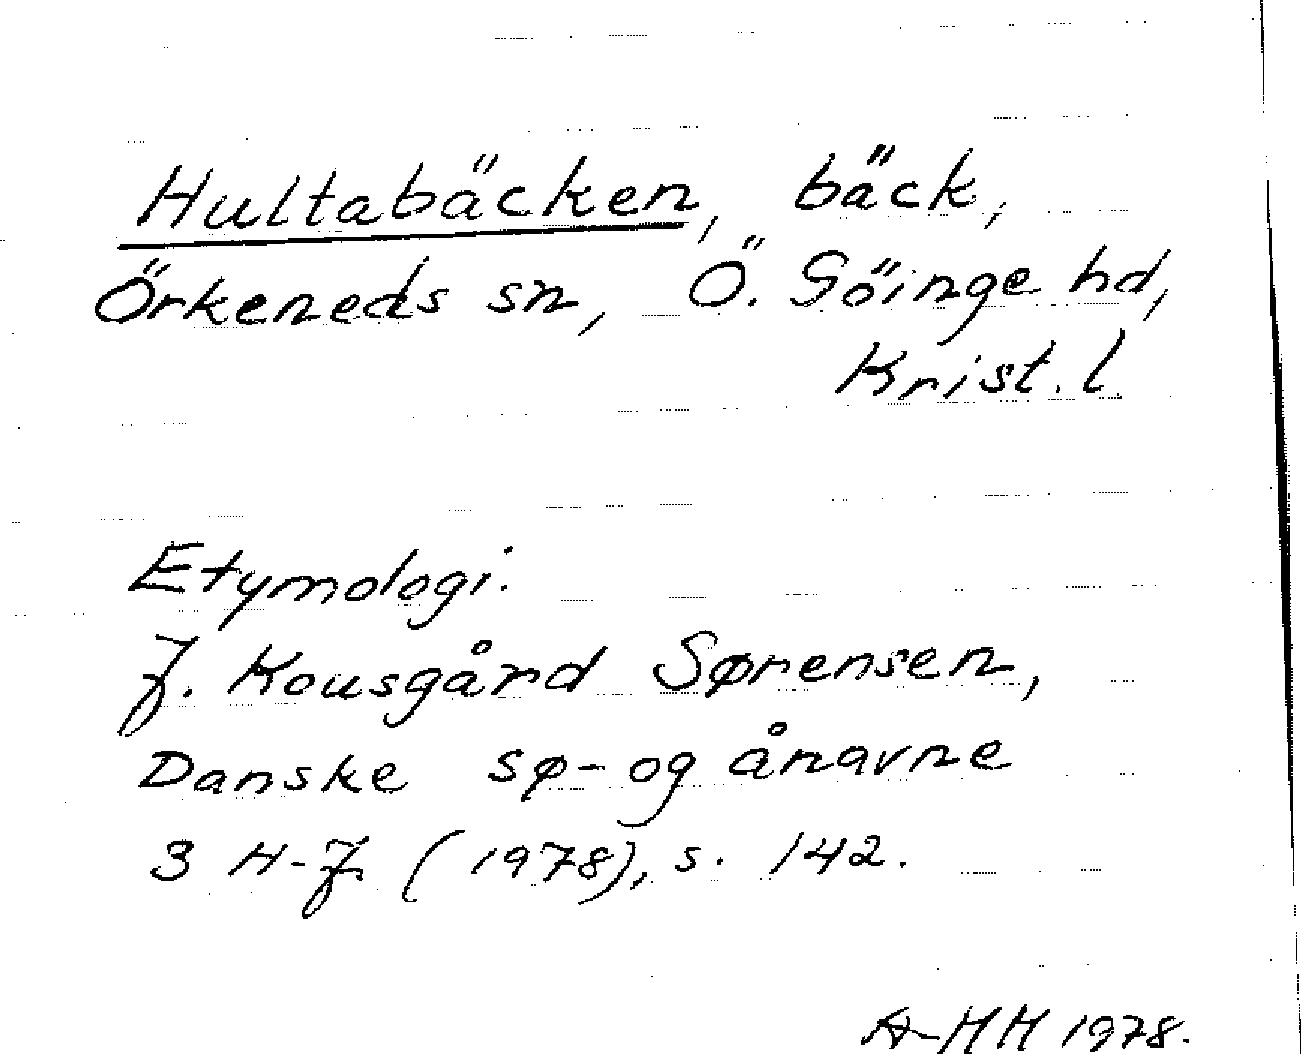 Hultabäcken, bäck,
Örkeneds sn, Ö. Göinge hd,
Krist. l.
Etymologi.
J. Kousgård Sørensen,
Danske sø- og ånavne
3 H-J (1978), s. 142.
A-HH 1978.